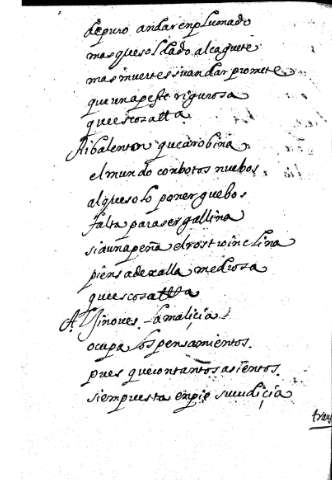 de puro andar enplumado
mas que soldado alcaguete
mas muertes su andar promete
que una peste rigurosa
que es cosa tta
Ai balenton que arobina
el mundo con botos nuebos
al que solo poner guebos
falta para ser gallina
si a una peña el rostro inclina
piensa dexalla medrosa
que es cosa tta
A. Jinoues la maliçia
ocupa los pensamientos
pues que con tantos asientos
siempre esta en pie su cudiçia